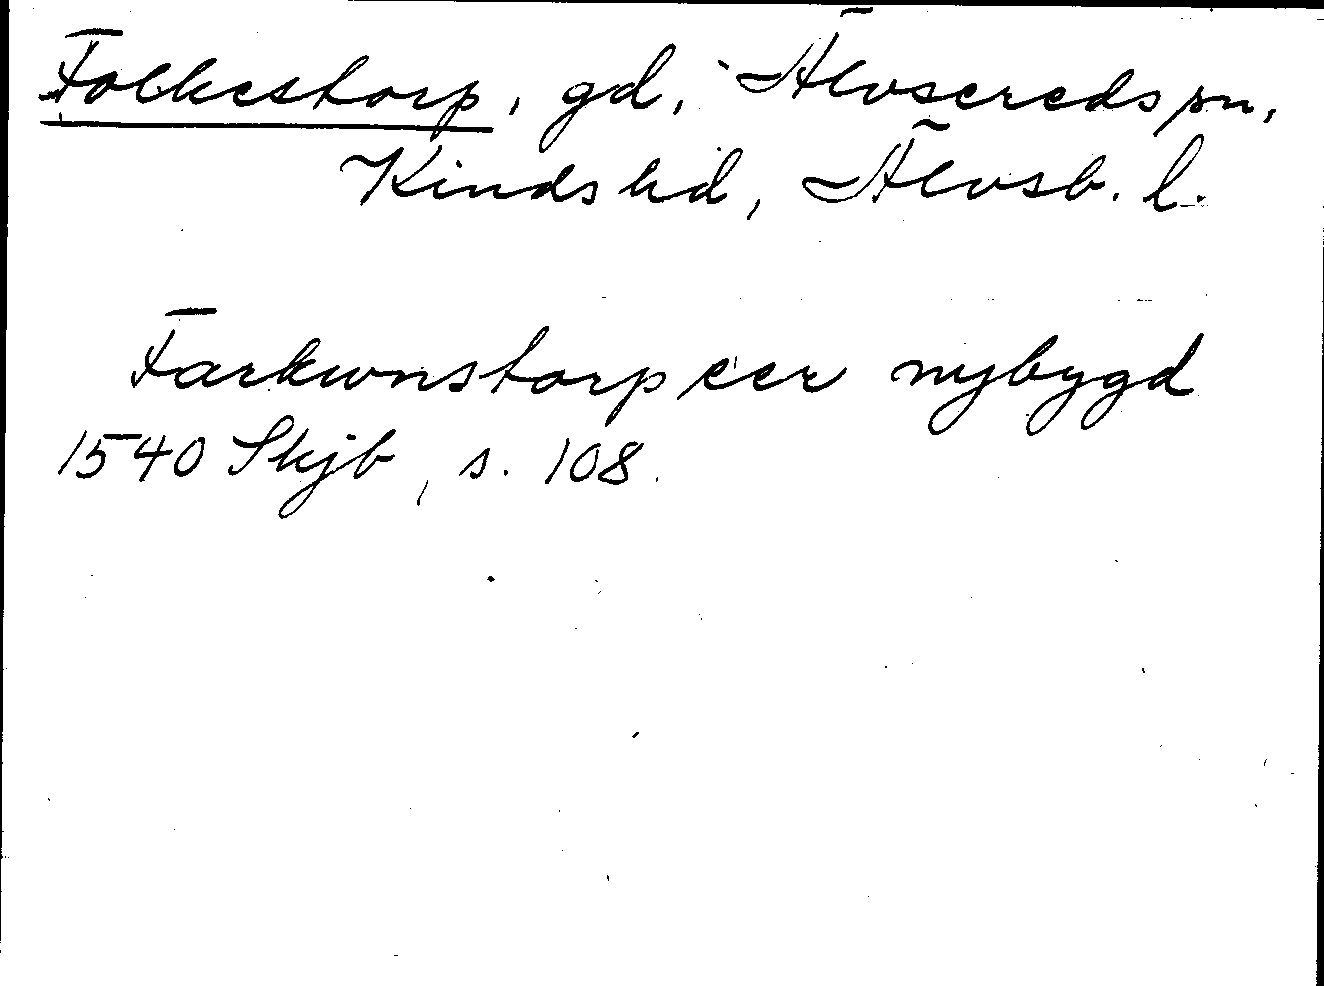 Folkestorp, gd, Älvsereds sn,
Kinds hd, Älvsb. l.
Farkwnstorp eer nybygd
1540 Skjb, s. 108.